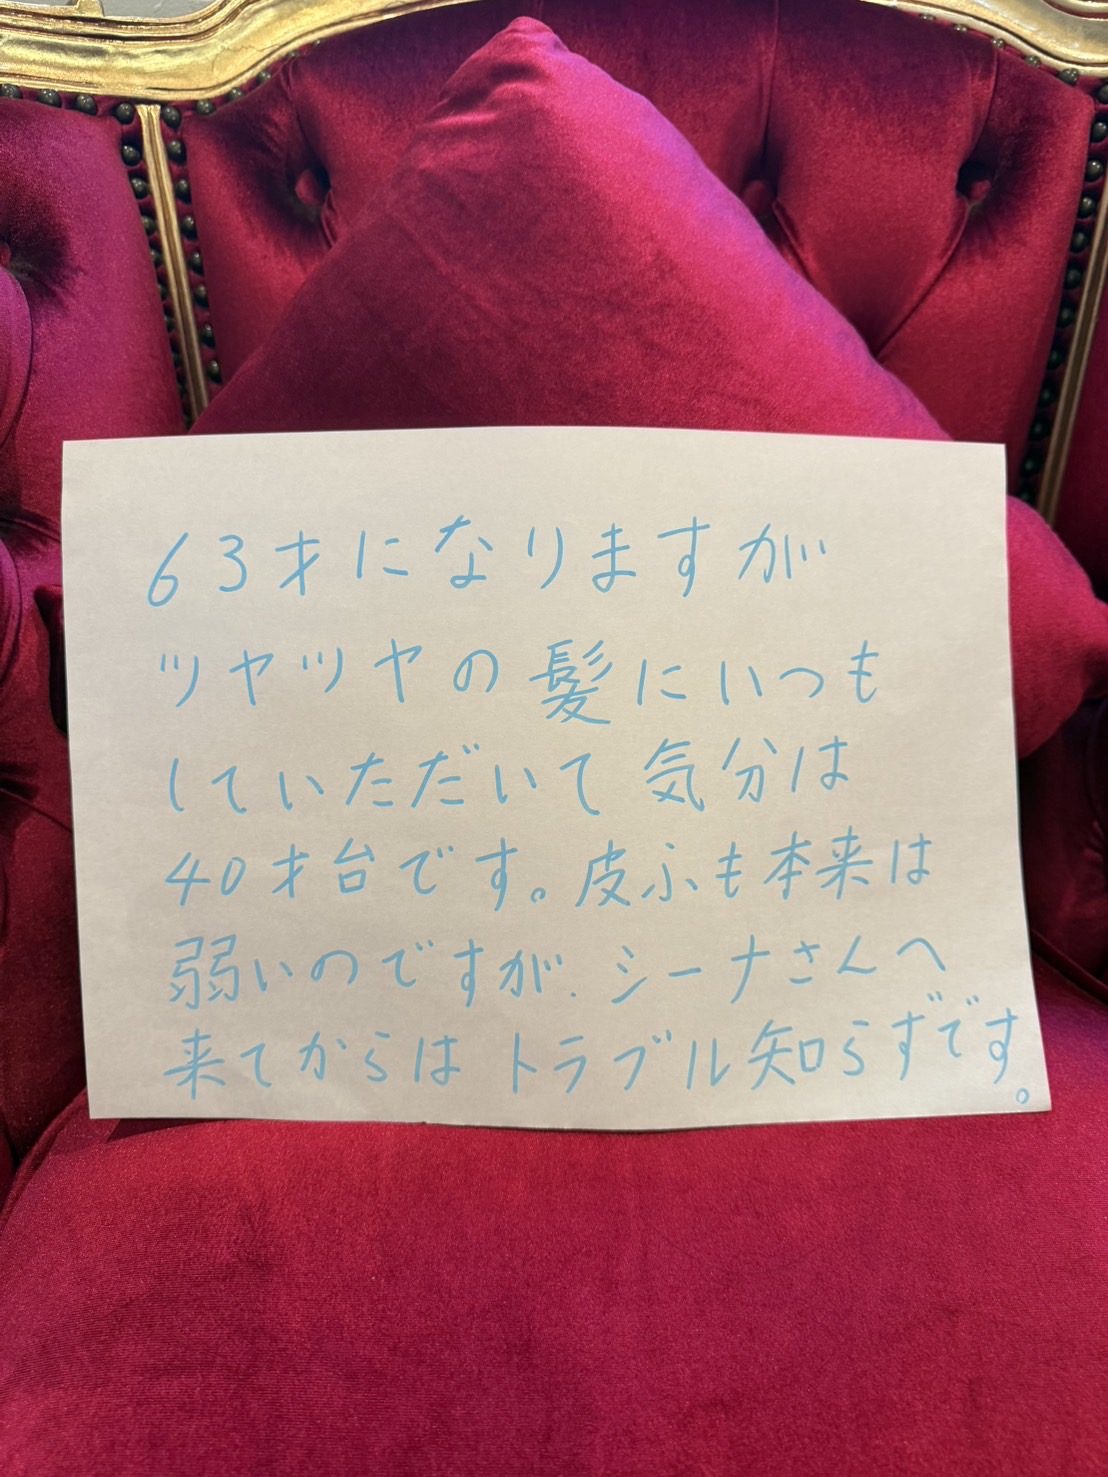 63才になりますが
ツヤツヤの髪にいつも
していただいて気分は
40才台です。皮ふも本来は
弱いのですが、シーナさんへ
来てからはトラブル知らずです。